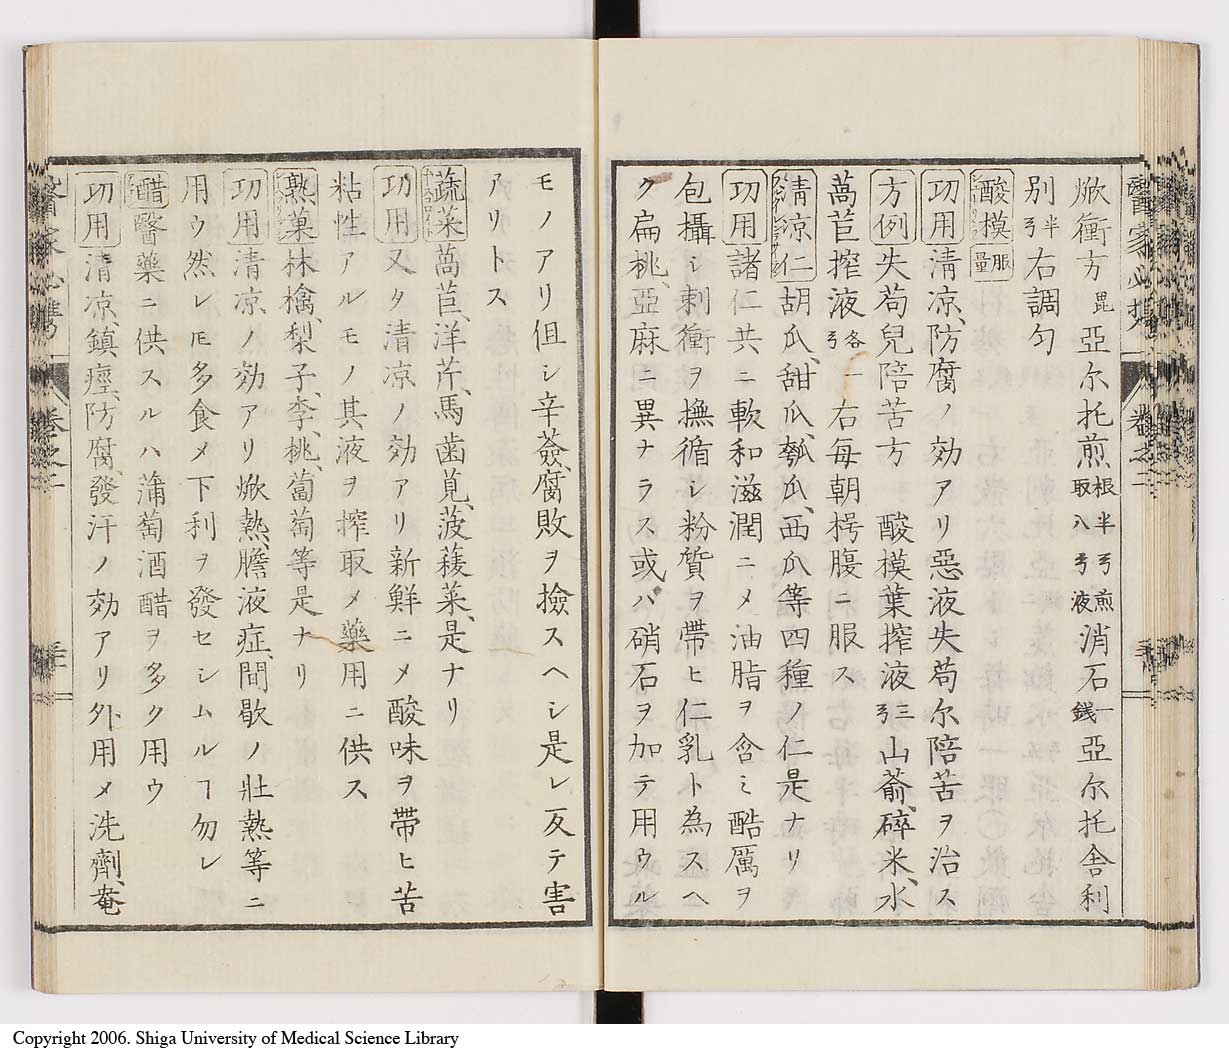 焮衝方 毘 亞尔托煎 根半ヲ煎取八ヲ液 消石 一錢 亞尔托舎利
別 半ヲ 右調勻
酸模 服量
功用 清凉、防腐ノ効アリ惡液失苟尔陪苦ヲ治ス
方例 失苟兒陪苦方 酸模葉搾液 三ヲ 山蕍、碎米、水
萵苣搾液 各一ヲ 右毎朝枵腹ニ服ス
清凉仁 胡瓜、甜瓜、瓠瓜、西瓜等四種ノ仁是ナリ
功用 諸仁共ニ軟和滋潤ニメ油脂ヲ含ミ酷厲ヲ
包攝シ刺衝ヲ撫循シ粉質ヲ帶ヒ仁乳ト為スヘ
ク扁桃、亞麻ニ異ナラス或ハ硝石ヲ加テ用ウル
モノアリ伹シ辛薟、腐敗ヲ撿スヘシ是レ反テ害
アリトス
蔬菜 萵苣、洋芹、馬歯莧、菠薐菜、是ナリ
功用 又タ清凉ノ効アリ新鮮ニメ酸味ヲ帶ヒ苦
粘性アルモノ其液ヲ搾取メ藥用ニ供ス
熟菓 林檎、梨子、李、桃、蔔萄等是ナリ
功用 清凉ノ効アリ焮熱、膽液症、間歇ノ壯熱等ニ
用ウ然レ𪜈多食メ下利ヲ發セシムルヿ勿レ
醋 醫藥ニ供スルハ蒲萄酒醋ヲ多ク用ウ
功用 清凉、鎮痙、防腐、發汗ノ効アリ外用メ洗劑、菴
醫家必携 卷之二
Copyright 2006. Shiga University of Medical Science Library